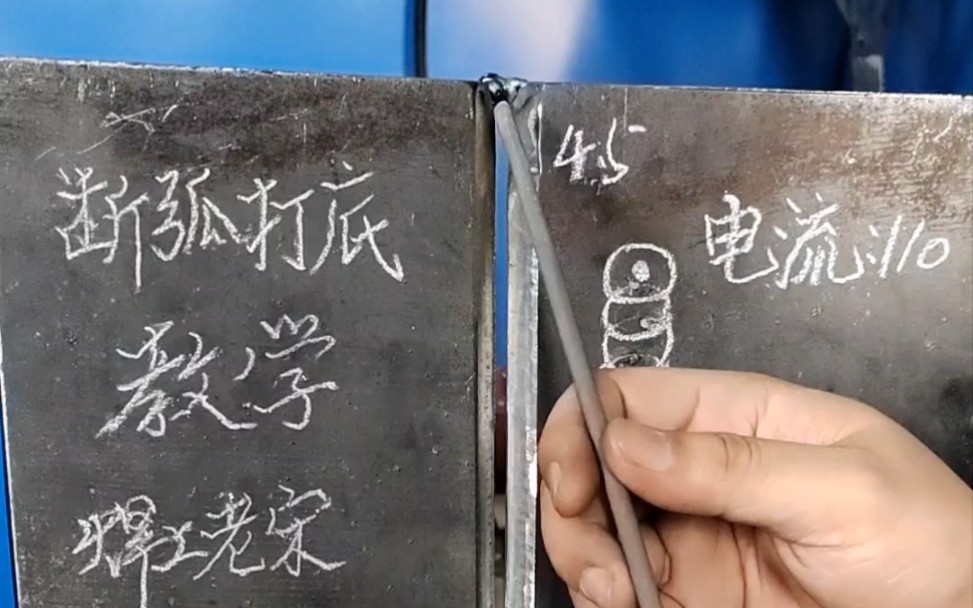 断弧打底
教学
焊工老宋
4.5
电流:110